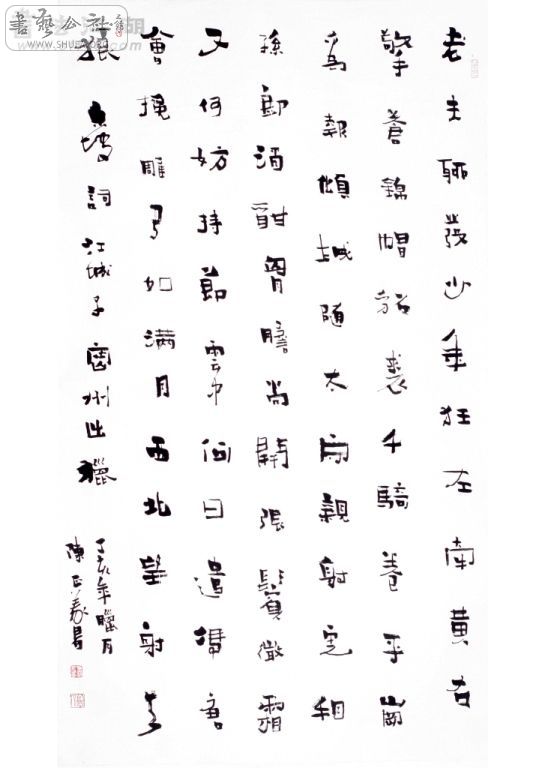 老夫聊發少年狂左牽黄右
擎蒼錦帽貂裘千騎卷平岡
為報傾城隨太守親射虎看
孫郎酒酣胸膽尚開張鬢微霜
又何妨持節雲中何日遣馮唐
會挽雕弓如滿月西北望射天
狼 東坡詞江城子密州出獵
丁亥年臘月
陳正義書
書藝公社